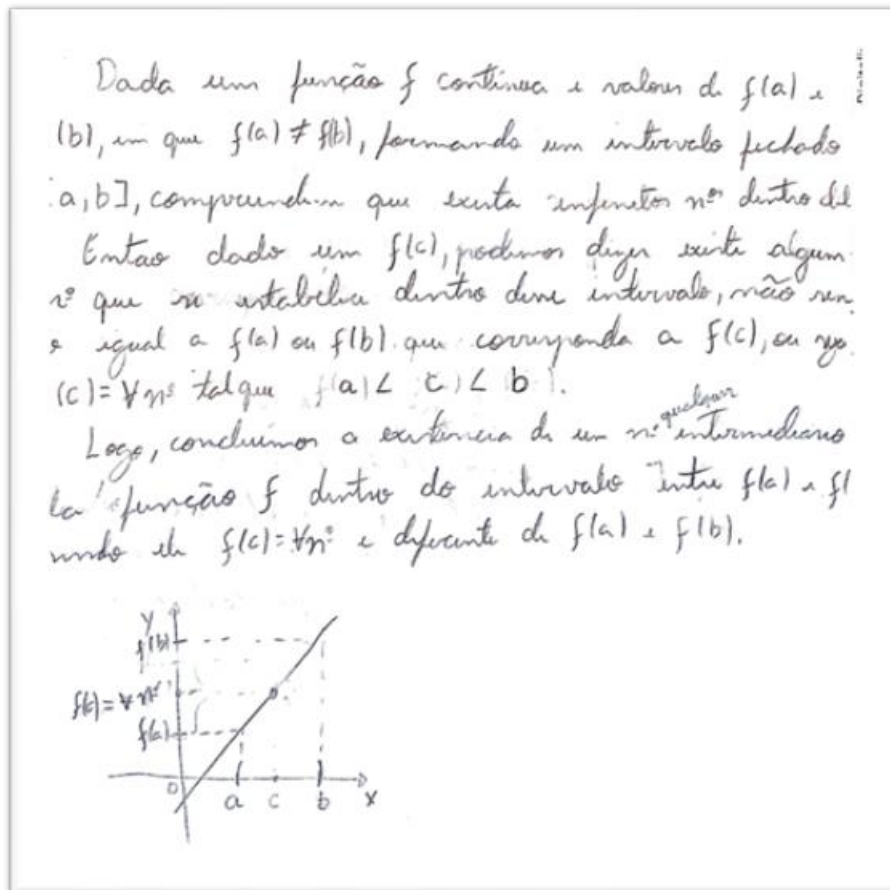 Dada um função f contínua e valores de f(a) e
(b), em que f(a) ≠ f(b), formando um intervalo fechado
a, b], compreendem que exista infinitos nºs dentro del
Entao dado um f(c), podemos dizer existe algum
nº que se estabelece dentro desse intervalo, não sen
o igual a f(a) ou f(b) que corresponda a f(c), ou seja
(c) = ∀ nº tal que f(a) < c) < b
qualquer
Logo, concluimos a existência de um nº intermediário
da função f dentro do intervalo entre f(a) e f(
sendo ele f(c) = ∀nº e diferente de f(a) e f(b).
y
f(b)
f(c) = ∀ nº
f(a)
0 a c b x